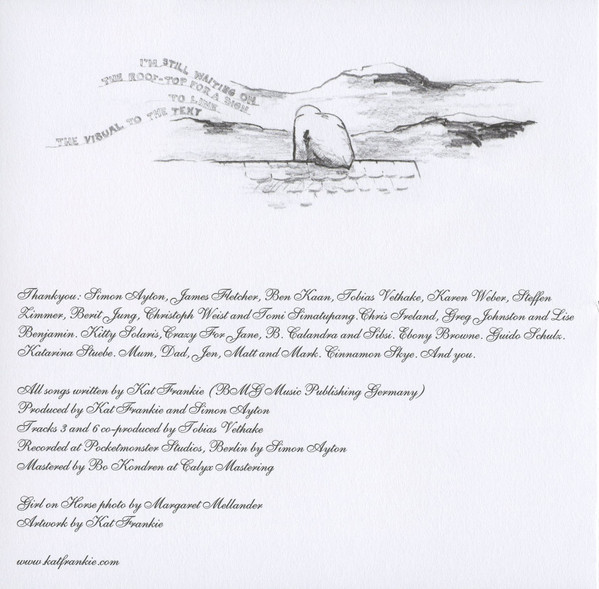 I'M STILL WAITING ON
THE ROOF-TOP FOR A SIGN
TO LINK
THE VISUAL TO THE TEXT
Thankyou: Simon Ayton, James Fletcher, Ben Kaan, Tobias Vethake, Karen Weber, Steffen
Zimmer, Berit Jung, Christoph Weist and Tomi Simatupang. Chris Ireland, Greg Johnston and Lise
Benjamin. Kitty Solaris, Crazy For Jane, B. Calandra and Silsi. Ebony Browne. Guido Schulz.
Katarina Stuebe. Mum, Dad, Jen, Matt and Mark. Cinnamon Skye. And you.
All songs written by Kat Frankie (BMG Music Publishing Germany)
Produced by Kat Frankie and Simon Ayton
Tracks 3 and 6 co-produced by Tobias Vethake
Recorded at Pocketmonster Studios, Berlin by Simon Ayton
Mastered by Bo Kondren at Calyx Mastering
Girl on Horse photo by Margaret Mellander
Artwork by Kat Frankie
www.katfrankie.com